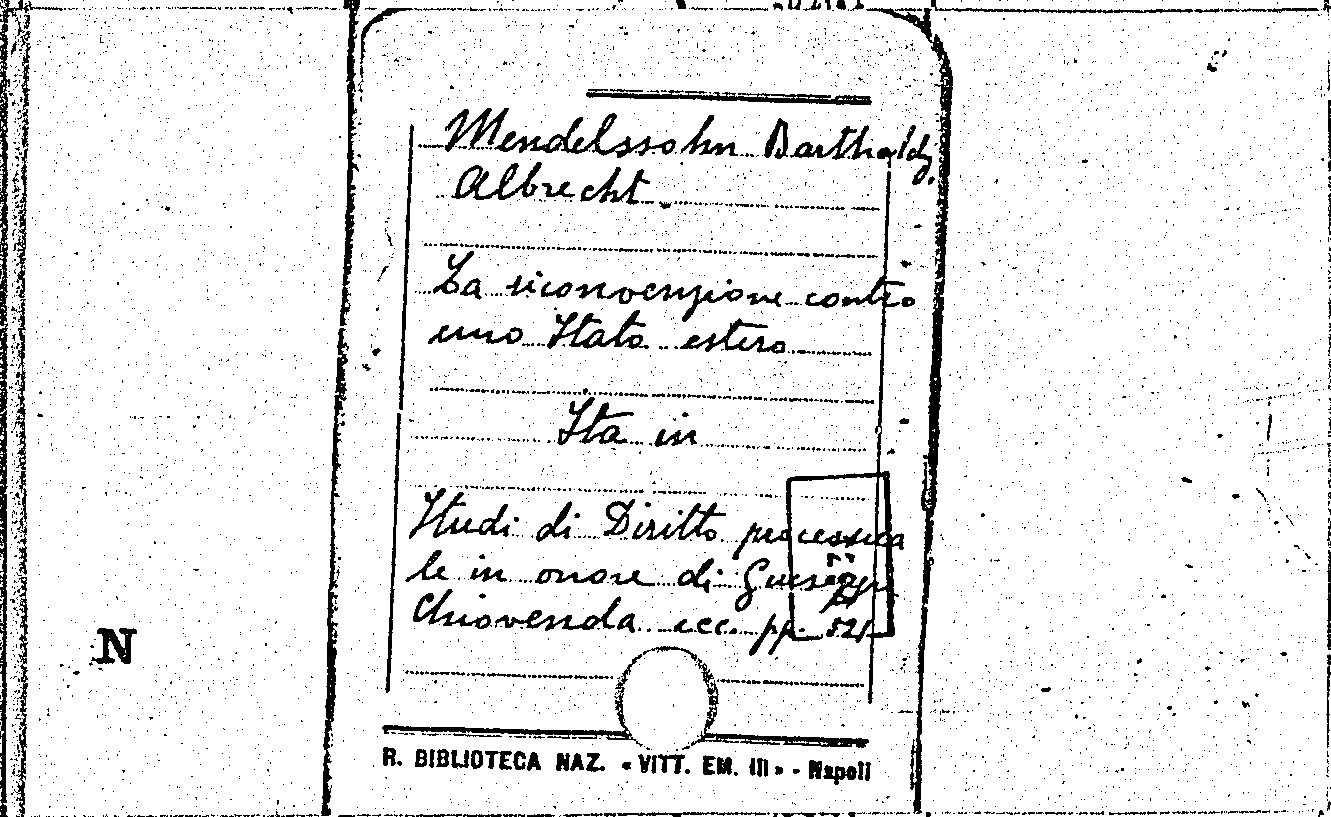 Mendelssohn Bartholdy.
Albrecht.
La riconvenzione contro
uno Stato estero
Sta in
Studi di Diritto processua
le in onore di Giuseppe
Chiovenda ecc. pp. 521
N
R. BIBLIOTECA NAZ. « VITT. EM. III » - Napoli